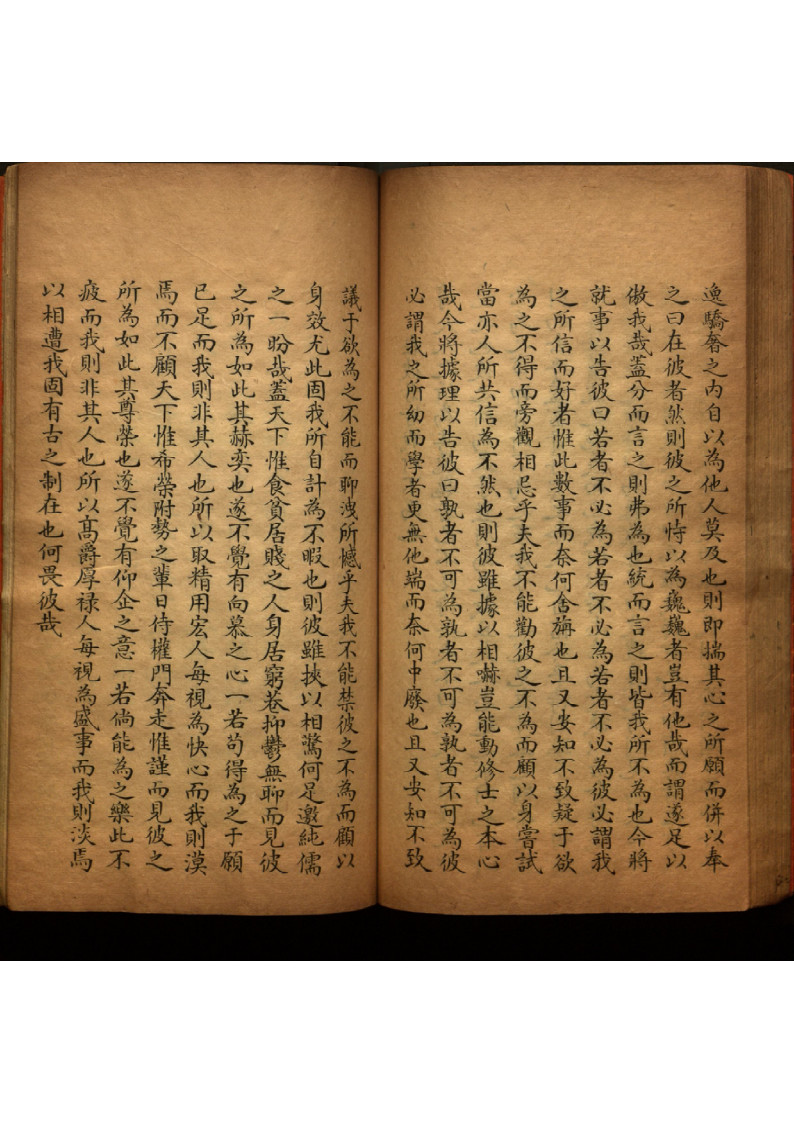 逸驕奢之内自以為他人莫及也則即揣其心之所願而併以奉
之曰在彼者然則彼之所恃以為巍巍者豈有他哉而謂遂足以
傲我哉蓋分而言之則弗為也統而言之則皆我所不為也今將
就事以告彼曰若者不必為若者不必為若者不必為彼必謂我
之所信而好者惟此數事而奈何舍旃也且又安知不致疑于欲
為之不得而旁觀相忌乎夫我不能勸彼之不為而顧以身嘗試
當亦人所共信為不然也則彼雖據以相嚇豈能動修士之本心
哉今將據理以告彼曰孰者不可為孰者不可為孰者不可為彼
必謂我之所幼而學者更無他端而奈何中廢也且又安知不致
議于欲為之不能而聊洩所憾乎夫我不能禁彼之不為而顧以
身效尤此固我所自計為不暇也則彼雖挾以相驚何足邀純儒
之一盼哉蓋天下惟食貧居賤之人身居窮巷抑鬱無聊而見彼
之所為如此其赫奕也遂不覺有向慕之心一若苟得為之于願
已足而我則非其人也所以取精用宏人每視為快心而我則漠
焉而不顧天下惟希榮附勢之輩日侍權門奔走惟謹而見彼之
所為如此其尊榮也遂不覺有仰企之意一若倘能為之樂此不
疲而我則非其人也所以髙爵厚禄人每視為盛事而我則淡焉
以相遭我固有古之制在也何畏彼哉